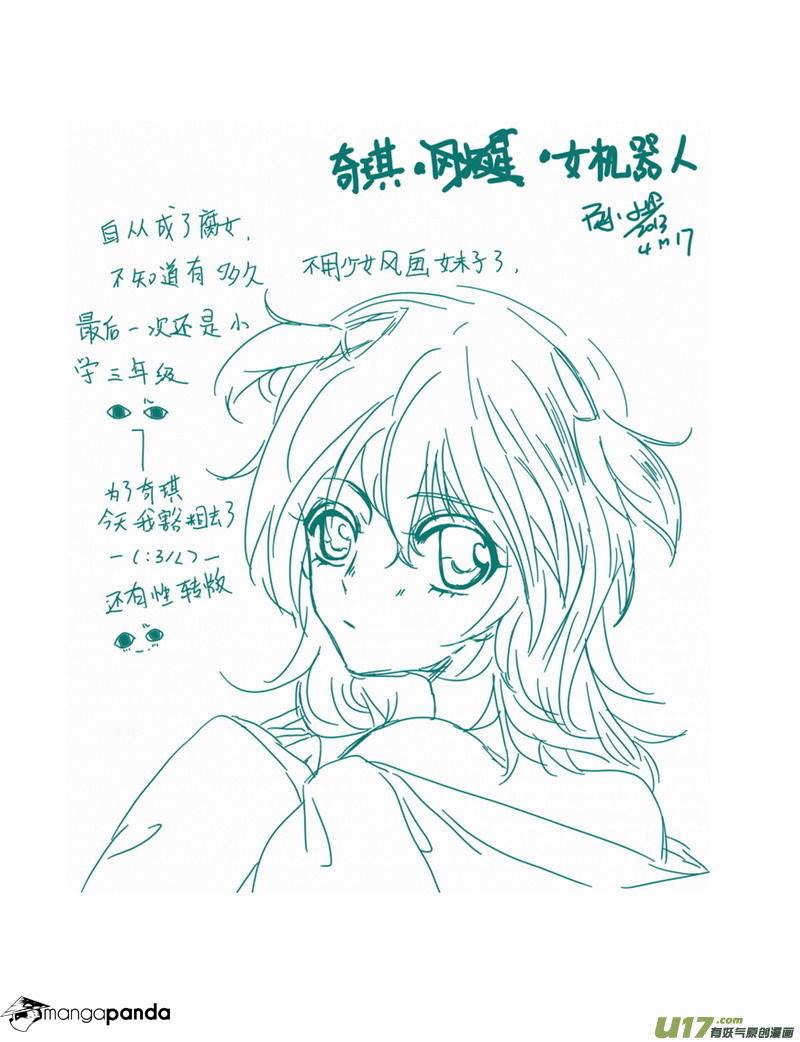 奇琪·风·女机器人
2013
4 m 17
自从成了腐女,
不知道有多久 不用少女风画妹子了,
最后一次还是小
学三年级
为了奇琪
今天我豁粗去了
—(:3/L)—
还有性转版
mangapanda
U17.com
有妖气原创漫画